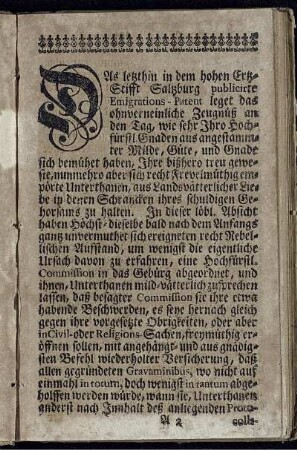 DAs letzthin in dem hohen Ertz-
Stifft Saltzburg publicirte
Emigrations-Patent leget das
ohnverneinliche Zeugnüß an
den Tag, wie sehr Ihro Hoch-
fürstl. Gnaden aus angestamm-
ter Milde, Güte, und Gnade
sich bemühet haben, Ihre bißhero treu gewe-
sie, nunmehro aber sich recht Frevelmüthig em-
pörte Unterthanen, aus Landsvätterlicher Lie-
be in denen Schrancken ihres schuldigen Ge-
horsams zu halten. In dieser löbl. Absicht
haben Höchst-dieselbe bald nach dem Anfangs
gantz unvermuthet sich ereigneten recht Rebel-
lischen Auffstand, um wenigst die eigentliche
Ursach davon zu erfahren, eine Hochfürstl.
Commission in das Gebürg abgeordnet, und
ihnen, Unterthanen mild-vätterlich zusprechen
lassen, daß besagter Commission sie ihre etwa
habende Beschwerden, es seye hernach gleich
gegen ihre vorgesetzte Obrigkeiten, oder aber
in Civil- oder Religions-Sachen, freymüthig er-
öffnen sollen, mit angehängt- und aus gnädig-
sten Befehl wiederholter Versicherung, daß
allen gegründeten Gravaminibus, wo nicht auf
einmahl in totum, doch wenigst in tantum abge-
holffen werden würde, wann sie, Unterthanen
anderst nach Innhalt deß anliegenden Proto-
A 2 colls-